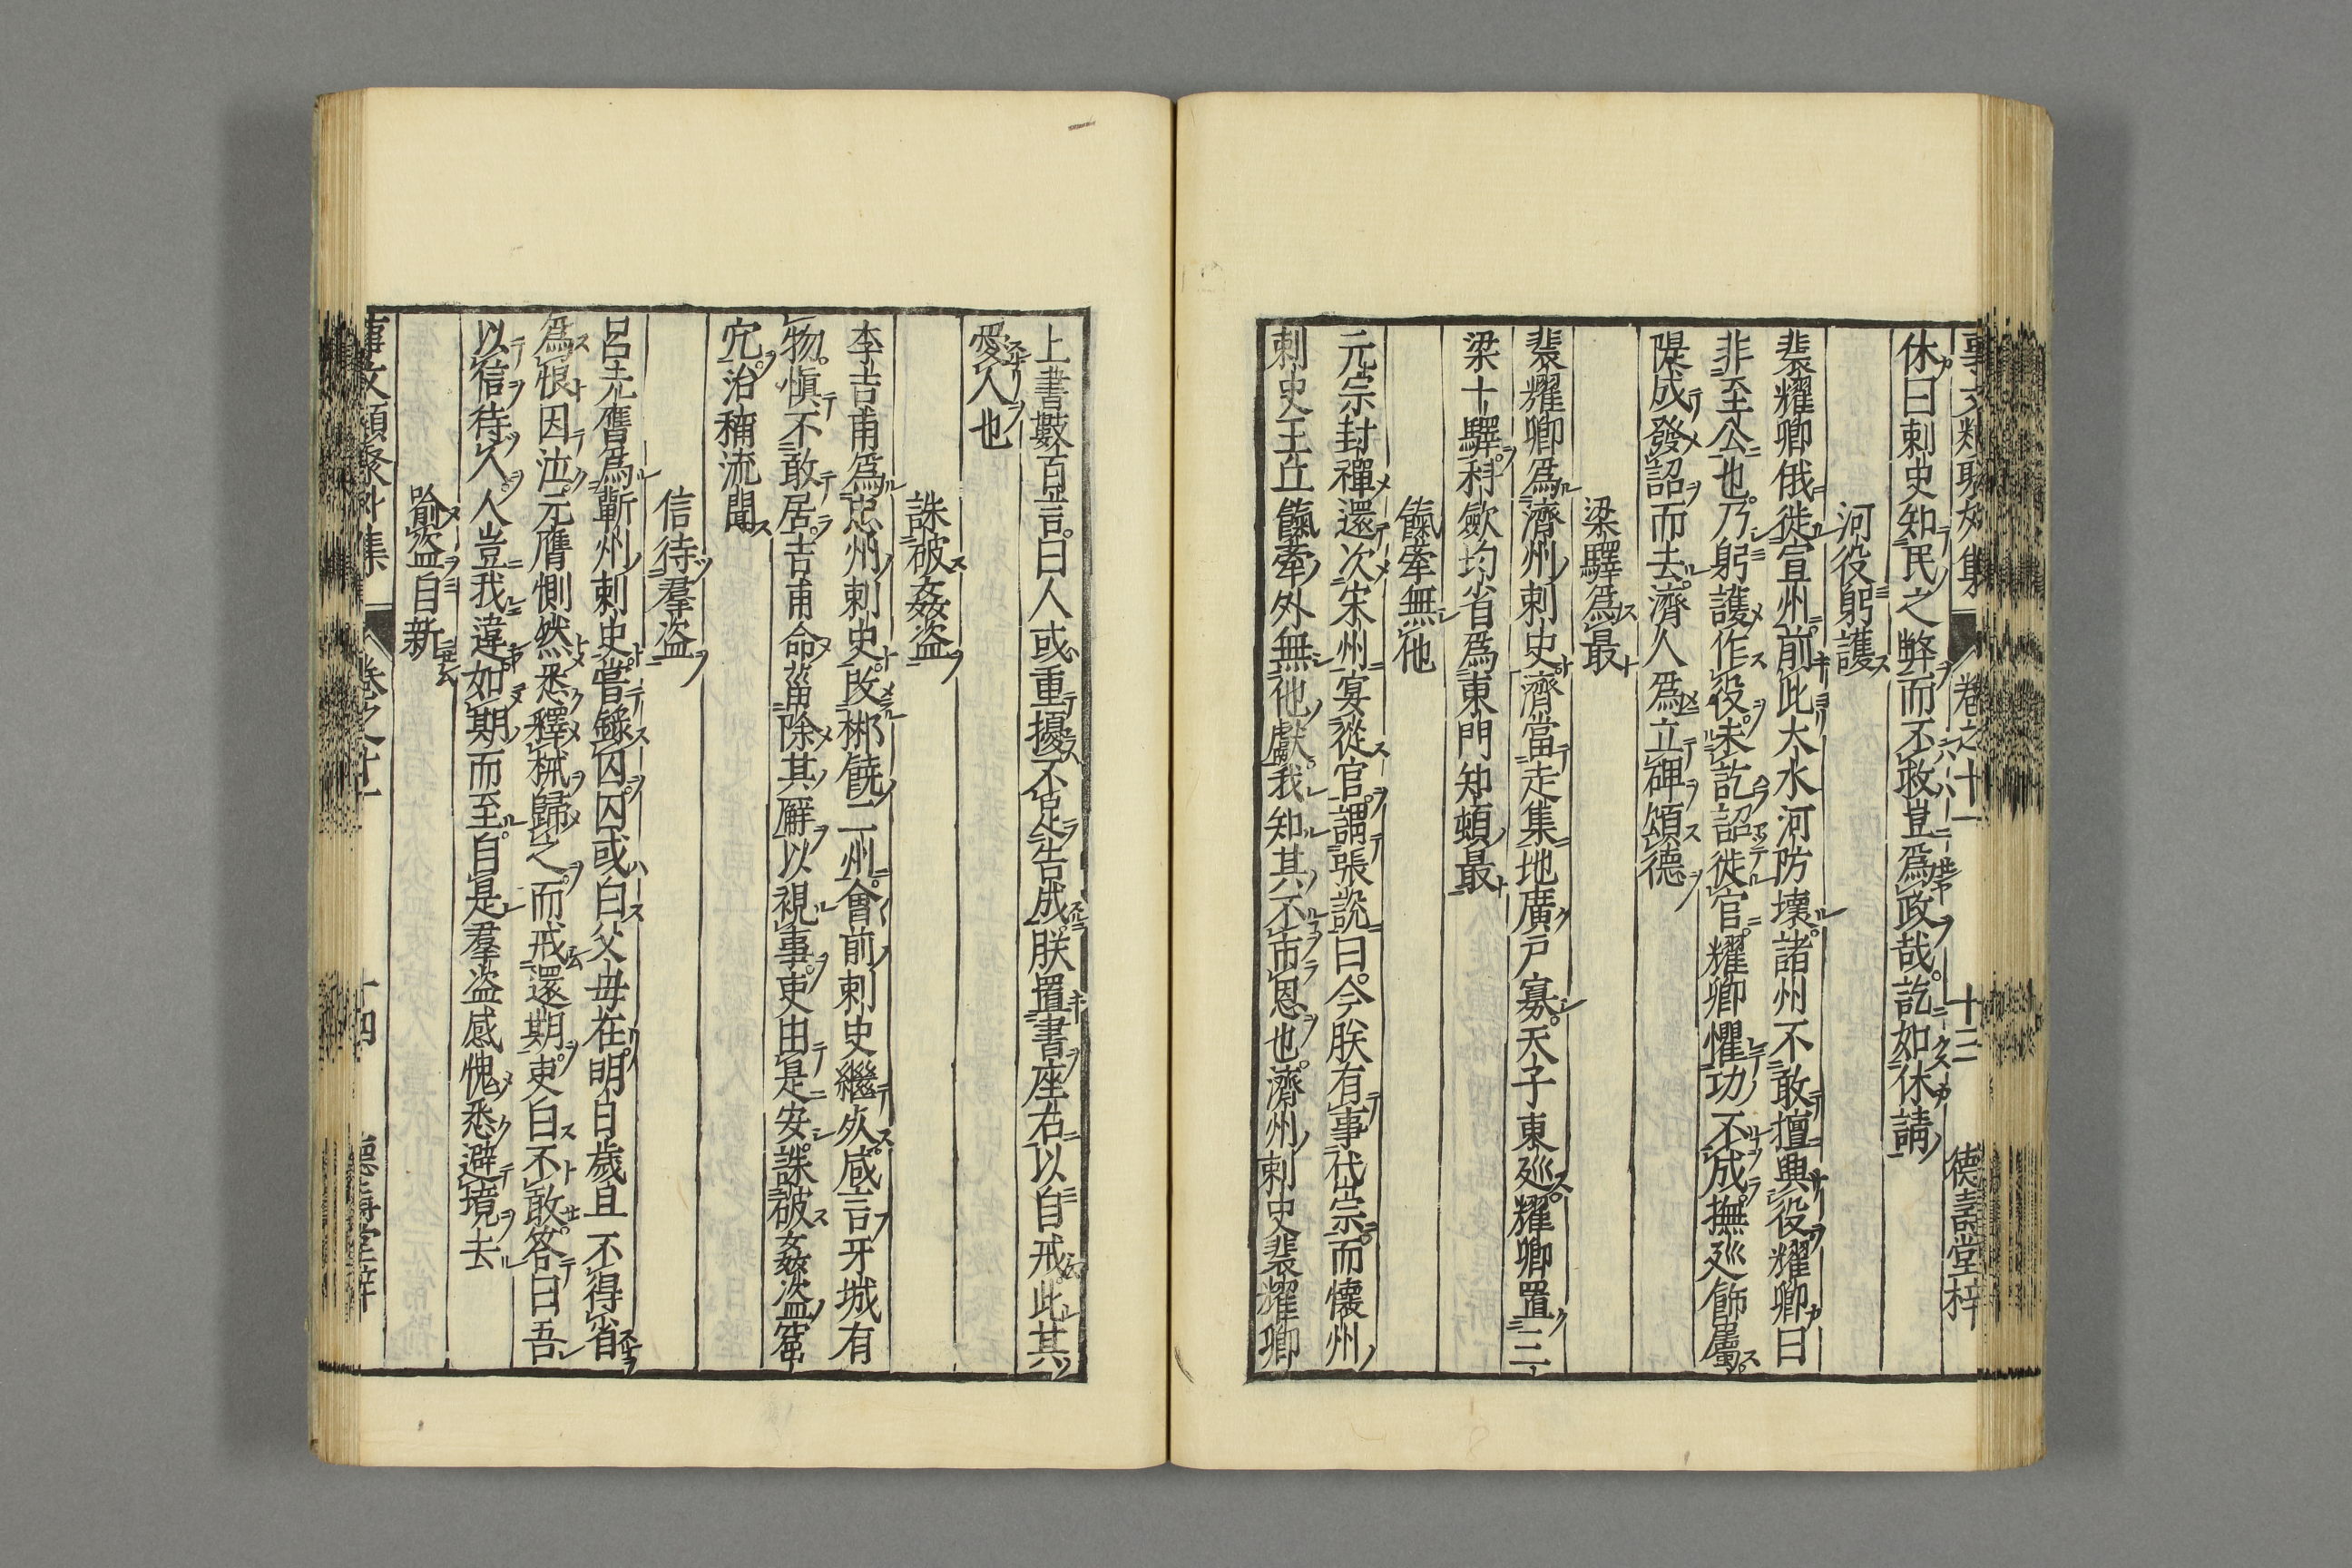 事文類聚外集 卷之十一 十三 德壽堂梓
休曰刺史知民之弊而不救豈爲政哉訖如休請
河役躬護
裴耀卿俄徙宣州前此大水河防壞諸州不敢擅興役耀卿曰
非至公也乃躬護作役未訖詔徙官耀卿懼功不成撫廵飭厲
隄成發詔而去濟人爲立碑頌德
梁驛爲最
裴耀卿爲濟州刺史濟當走集地廣戶寡天子東廵耀卿置三
梁十驛科歛均省爲東門知頓最
餼牽無他
元宗封禪還次宋州宴從官謂張說曰今朕有事岱宗而懷州
刺史王丘餼牽外無他獻我知其不市恩也濟州刺史裴耀卿
上書數百言曰人或重擾不足告成朕置書座右以自戒此其
愛人也
誅破姦盜
李吉甫爲忠州刺史改郴饒二州會前刺史繼死咸言牙城有
物恠不敢居吉甫命菑除其廨以視事吏由是安誅破姦盜窟
穴治稱流聞
信待羣盜
呂元膺爲蘄州刺史嘗錄囚囚或白父母在明日歲旦不得省
爲恨因泣元膺惻然悉釋械歸之而戒還期吏白不敢答曰吾
以信待人人豈我違如期而至自是羣盜感愧悉避境去
喻盜自新
事文類聚外集 卷之十一 十四 德壽堂梓